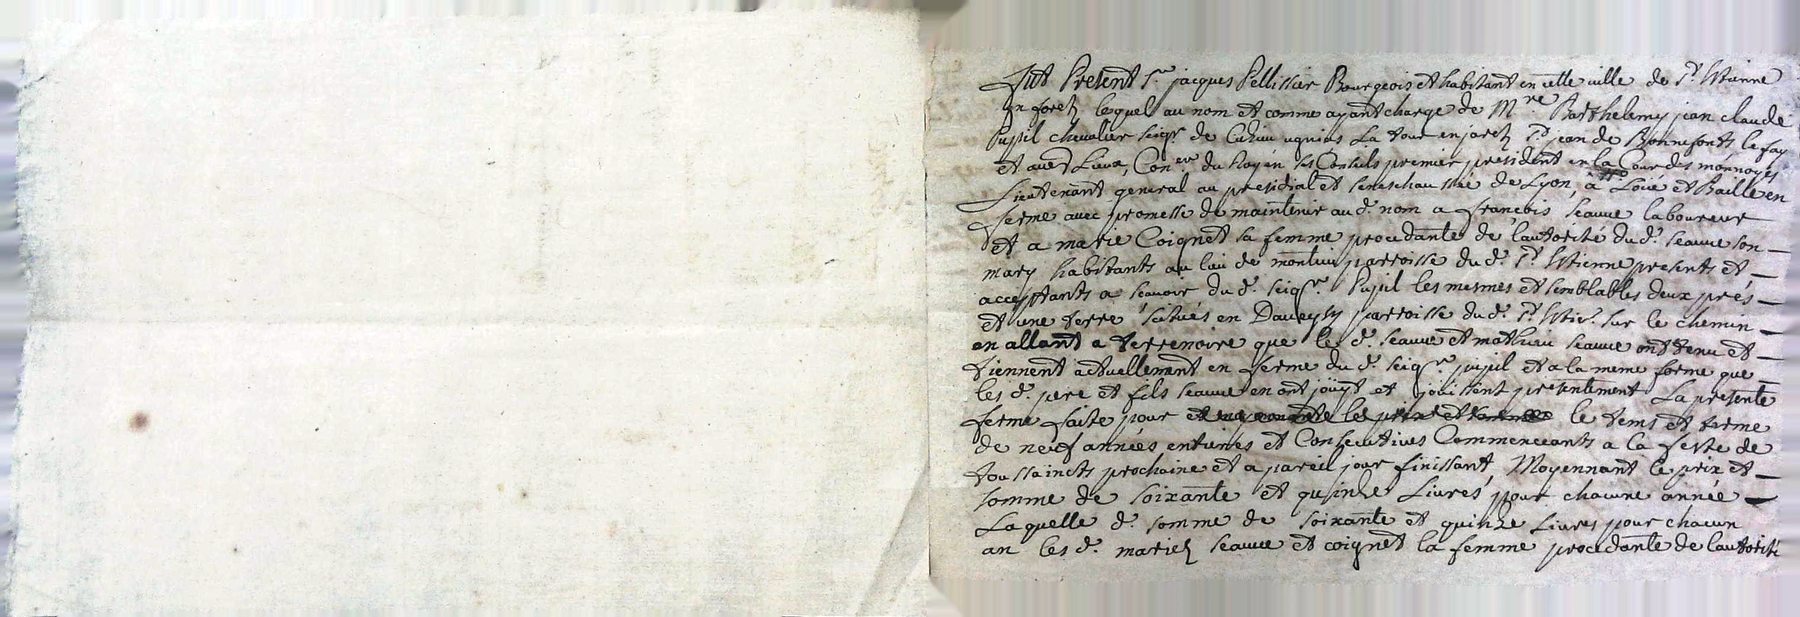 fut Present Sr jacques Pellissier Bourgeois et habitant en cette ville de St Etienne
en forez lequel au nom et comme ayant charge de Mre Barthelemy jean claude
Pupil chevalier seigr de Cuzieu ugnias La tour en jarez St jean de Bonnefonts le fay
et autres Lieux, Coner du Roy en ses Conseils premier president en la Cour des monnoyes
Lieutenant general au presidial et seneschaussée de Lyon, a Loüé et Baille en
ferme avec promesse de maintenir aud. nom a françois seauve laboureur
et a marie Coignet sa femme procedante de l'autorité dud. seauve son
mary habitants au lieu de parroisse dud. St Etienne presents et
acceptants a scavoir dud. seigr. Pupil les mesmes et semblables deux prés
et une terre situés en parroisse dud. St Etie. sur le chemin
en allant a terrenoire que led. seauve et mathieu seauve ont tenu et
tiennent actuellement en ferme dud. seigr. pupil et a la meme forme que
lesd. pere et fils seauve en ont joüyt et joüissent presentement La presente
ferme faite pour le tems et terme
de neuf années entieres et Consecutives Commenceants a la feste de
toussaincts prochaine et a pareil jour finissant, Moyennant le prix et
somme de soixante et quinze Livres pour chacune année
Laquelle d. somme de soixante et quinze Livres pour chacun
an lesd. mariez seauve et coignet sa femme procedante de l'autorité